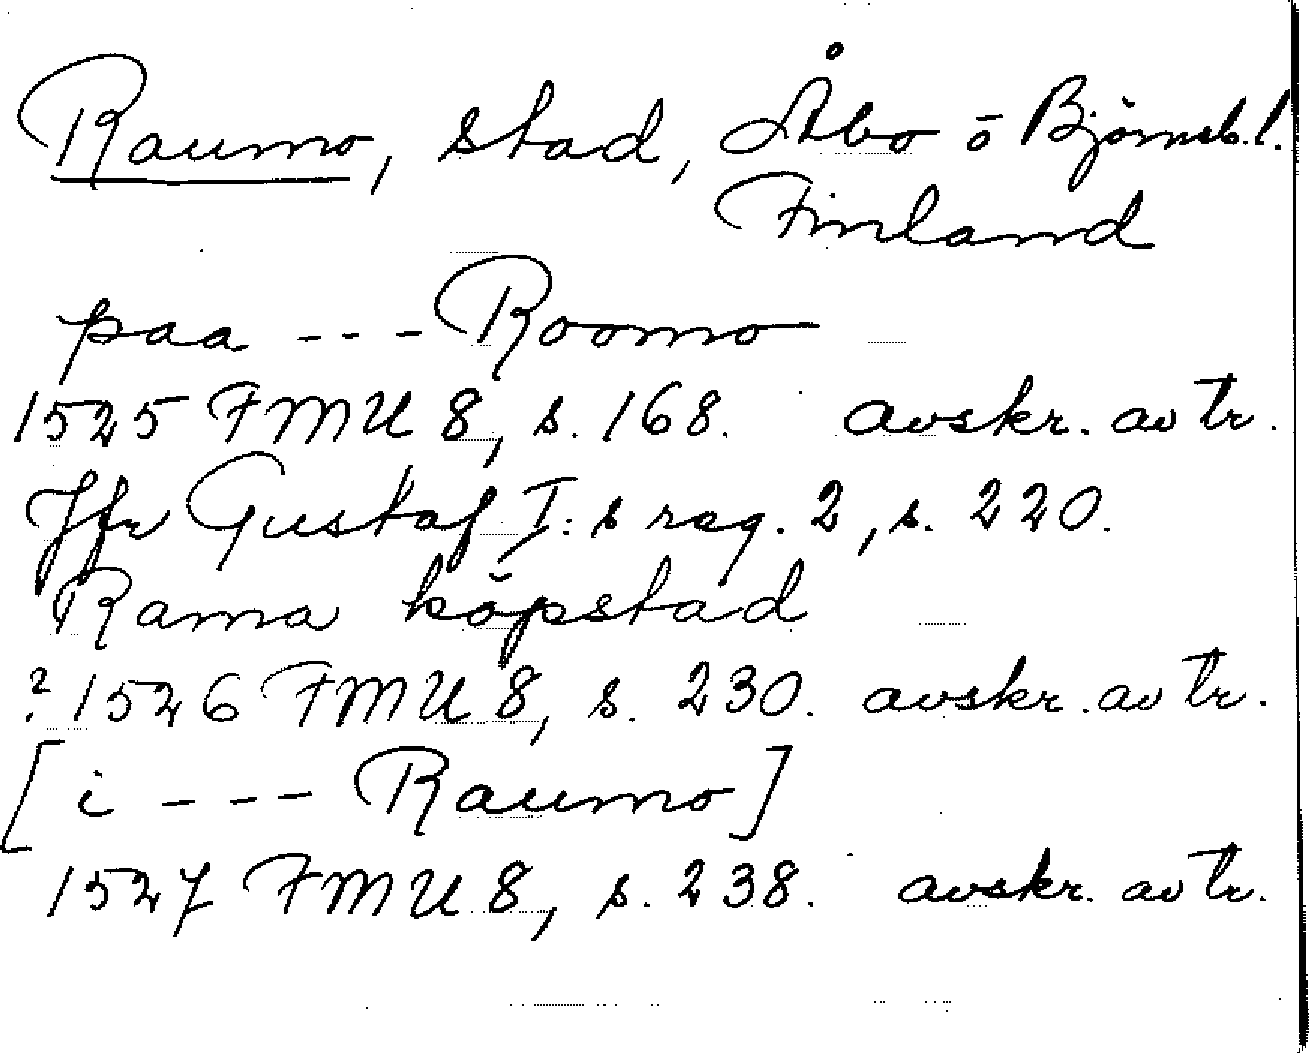 Raumo, stad, Åbo ō Björneb.l.
Finland
paa --- Roomo
1525 FMU 8, s. 168. avskr. av tr.
Jfr Gustaf I:s reg. 2, s. 220.
Rama köpstad
? 1526 FMU 8, s. 230. avskr. av tr.
[i --- Raumo]
1527 FMU 8, s. 238. avskr. av tr.